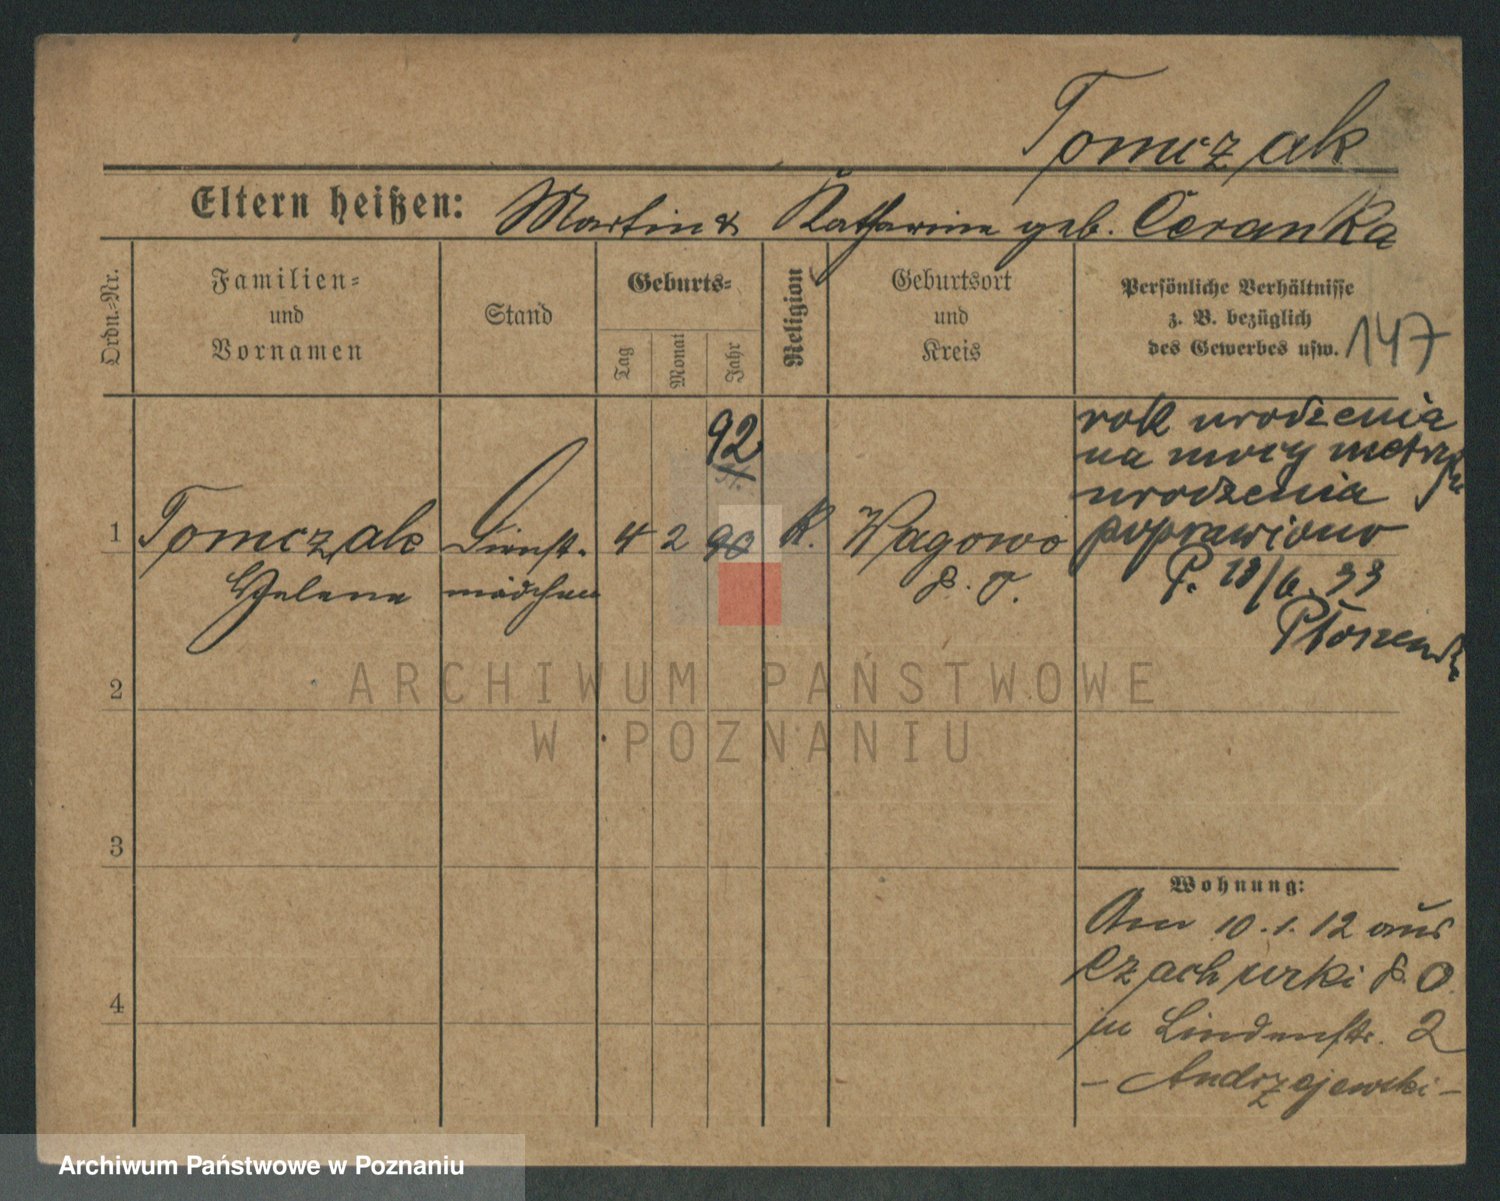 Tomczak
Eltern heißen: Martin & Katharine geb. Ceranka
Ordn.-Nr.
Familien-
und
Vornamen
Stand
Geburts-
Tag
Monat
Jahr
Religion
Geburtsort
und
Kreis
Persönliche Verhältnisse
z. B. bezüglich
des Gewerbes usw.
147
92
1 Tomczak Dienst- 4 2 90 K. Wagowo
Helene mädchen
rok urodzenia
na mocy metryki
urodzenia
poprawiono
P. 18/6. 33
2
3
4
Wohnung:
Am 10.1.12 aus
Czachurki P. O.
in Lindenstr. 2
- Andrzejewski -
ARCHIWUM PAŃSTWOWE
W POZNANIU
Archiwum Państwowe w Poznaniu